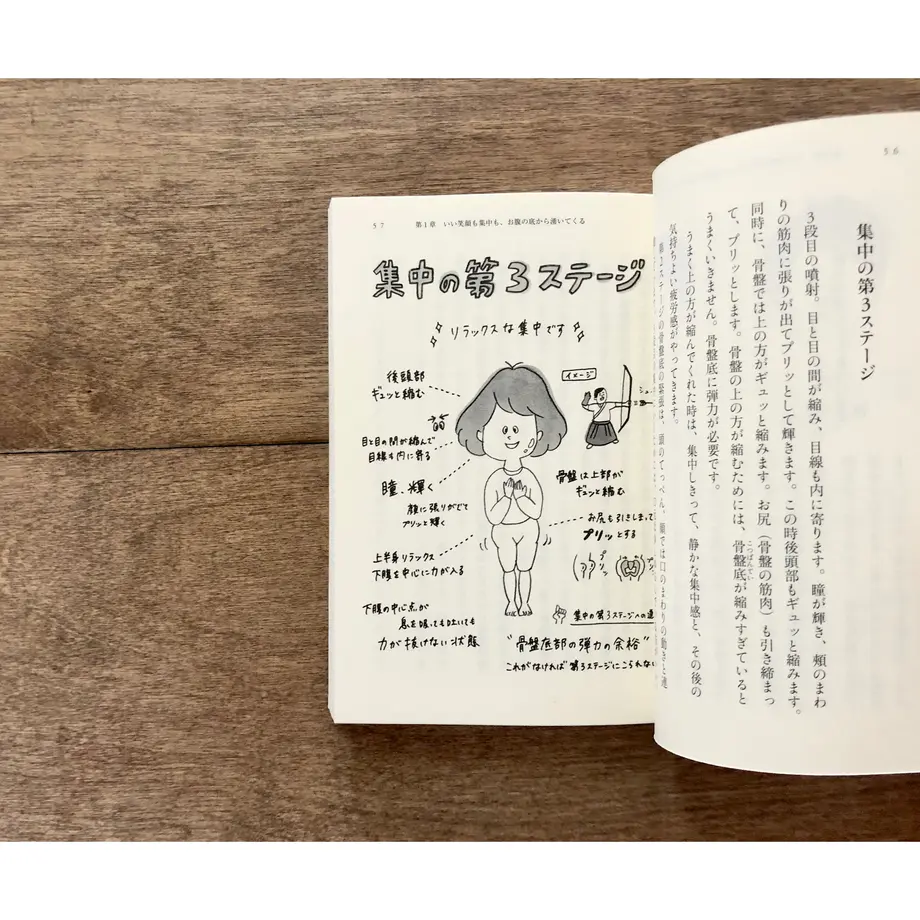 56
集中の第3ステージ
3段目の噴射。目と目の間が縮み、目線も内に寄ります。瞳が輝き、頬のまわ
りの筋肉に張りが出てプリッとして輝きます。この時後頭部もギュッと縮みます。
同時に、骨盤では上の方がギュッと縮みます。お尻(骨盤の筋肉)も引き締まっ
て、プリッとします。骨盤の上の方が縮むためには、骨盤底が縮みすぎていると
こつばんてい
うまくいきません。骨盤底に弾力が必要です。
うまく上の方が縮んでくれた時は、集中しきって、静かな集中感と、その後の
気持ちよい疲労感がやってきます。
第2ステージの骨盤底の緊張は、頭のてっぺん、顔では口のまわりの動きと連
57
第1章 いい笑顔も集中も、お腹の底から湧いてくる
集中の第3ステージ
リラックスな集中です
後頭部
ギュッと縮む
目と目の間が縮んで
目線も内に寄る
瞳、輝く
顔に張りがでて
プリッと輝く
上半身リラックス
下腹を中心に力が入る
下腹の中心点が
息を吸っても吐いても
力が抜けない状態
イメージ
骨盤は上部が
ギュッと縮む
お尻も引きしまって
プリッとする
プリッ
集中の第3ステージへの道
"骨盤底部の弾力の余裕"
これがなければ第3ステージにこられない